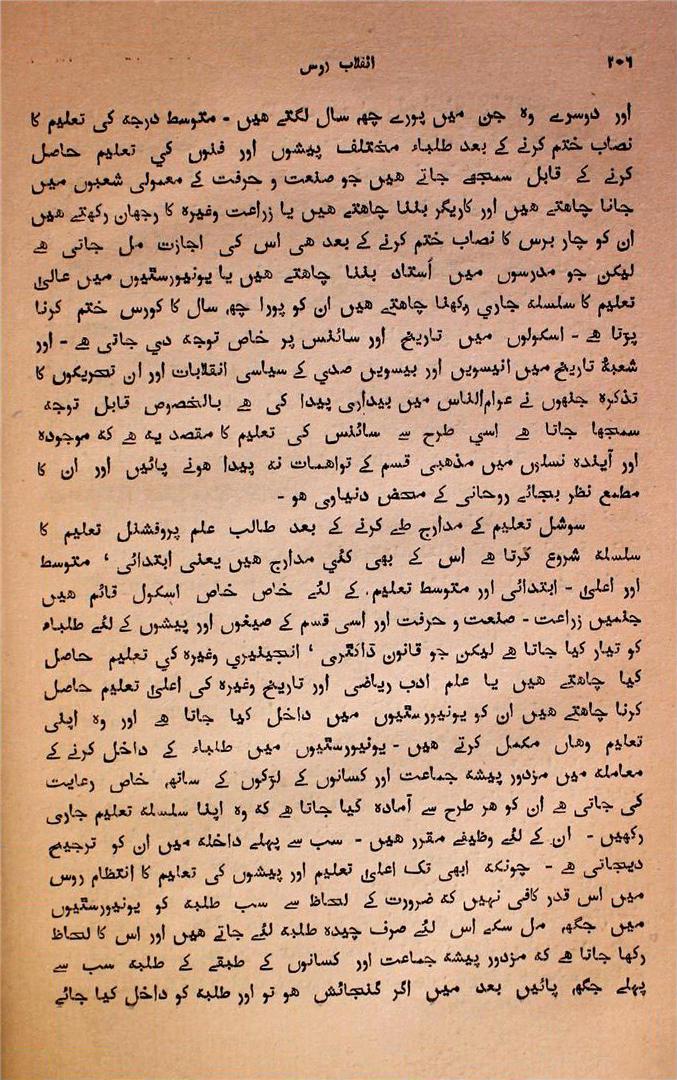 ۲۰۶
انقلاب روس
اور دوسرے وہ جن میں پورے چھہ سال لگتے ہیں - متوسط درجہ کی تعلیم کا
نصاب ختم کرنے کے بعد طلباء مختلف پیشوں اور فنوں کي تعلیم حاصل
کرنے کے قابل سمجھے جاتے ہیں جو صنعت و حرفت کے معمولی شعبوں میں
جانا چاہتے ہیں اور کاریگر بننا چاہتے ہیں یا زراعت وغیرہ کا رجھان رکھتے ہیں
ان کو چار برس کا نصاب ختم کرنے کے بعد ہی اس کی اجازت مل جاتی ہے
لیکن جو مدرسوں میں اُستاد بننا چاہتے ہیں یا یونیورسٹیوں میں عالیٰ
تعلیم کا سلسلہ جاري رکھنا چاہتے ہیں ان کو پورا چھہ سال کا کورس ختم کرنا
پڑتا ہے - اسکولوں میں تاریخ اور سائنس پر خاص توجہ دی جاتی ہے - اور
شعبۂ تاریخ میں انیسویں اور بیسویں صدي کے سیاسی انقلابات اور ان تحریکوں کا
تذکرہ جنھوں نے عوام‌الناس میں بیداری پیدا کی ہے بالخصوص قابل توجہ
سمجھا جاتا ہے اسي طرح سے سائنس کی تعلیم کا مقصد یہ ہے کہ موجودہ
اور آیندہ نسلوں میں مذہبی قسم کے تواہمات نہ پیدا ہونے پائیں اور ان کا
مطمع نظر بجائے روحانی کے محض دنیاوی ہو -
سوشل تعلیم کے مدارج طے کرنے کے بعد طالب علم پروفشنل تعلیم کا
سلسلہ شروع کرتا ہے اس کے بھی کئي مدارج ہیں یعنی ابتدائی ' متوسط
اور اعلیٰ - ابتدائی اور متوسط تعلیم کے لئے خاص خاص اسکول قائم ہیں
جنمیں زراعت - صنعت و حرفت اور اسی قسم کے صیغوں اور پیشوں کے لئے طلباء
کو تیار کیا جاتا ہے لیکن جو قانون ڈاکٹری ' انجینیري وغیرہ کي تعلیم حاصل
کیا چاہتے ہیں یا علم ادب ریاضی اور تاریخ وغیرہ کی اعلیٰ تعلیم حاصل
کرنا چاہتے ہیں ان کو یونیورسٹیوں میں داخل کیا جاتا ہے اور وہ اپنی
تعلیم وہاں مکمل کرتے ہیں - یونیورسٹیوں میں طلباء کے داخل کرنے کے
معاملہ میں مزدور پیشہ جماعت اور کسانوں کے لڑکوں کے ساتھہ خاص رعایت
کی جاتی ہے ان کو ہر طرح سے آمادہ کیا جاتا ہے کہ وہ اپنا سلسلہ تعلیم جاری
رکھیں - ان کے لئے وظیفے مقرر ہیں - سب سے پہلے داخلہ میں ان کو ترجیح
دیجاتی ہے - چونکہ ابھی تک اعلیٰ تعلیم اور پیشوں کی تعلیم کا انتظام روس
میں اس قدر کافی نہیں کہ ضرورت کے لحاظ سے سب طلبہ کو یونیورسٹیوں
میں جگھہ مل سکے اس لئے صرف چیدہ طلبہ لئے جاتے ہیں اور اس کا لحاظ
رکھا جاتا ہے کہ مزدور پیشہ جماعت اور کسانوں کے طبقے کے طلبہ سب سے
پہلے جگھہ پائیں بعد میں اگر گنجائش ہو تو اور طلبہ کو داخل کیا جائے